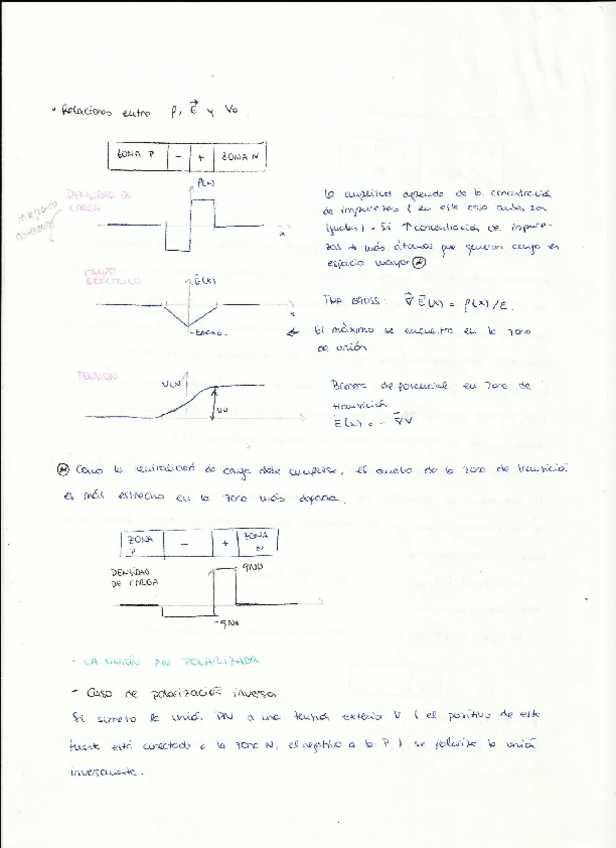 • Relaciones entre ρ, E⃗ y Vo
ZONA P - + ZONA N
ρ(x)
DENSIDAD DE
CARGA
x
La amplitud depende de la concentración
de impurezas ( en este caso ambas son
iguales ) . Si ↑ concentración de impure-
zas → más átomos que generan carga en
espacio mayor
CAMPO
ELÉCTRICO
E⃗(x)
x
TMA GAUSS: ∇⃗ E⃗(x) = ρ(x)/ε.
← El máximo se encuentra en la zona
de unión
TENSIÓN
V(x)
Vo
Barrera de potencial en zona de
transición
E(x) = - ∇⃗V
Como la neutralidad de carga debe cumplirse, el ancho de la zona de transición
es más estrecho en la zona más dopada.
ZONA P - + ZONA N
DENSIDAD
DE CARGA
qND
-qNA
- LA UNIÓN PN POLARIZADA
- Caso de polarización inversa
Si someto la unión PN a una tensión exterior V ( el positivo de esta
fuente está conectado a la zona N, el negativo a la P ) se polariza la unión
inversamente.